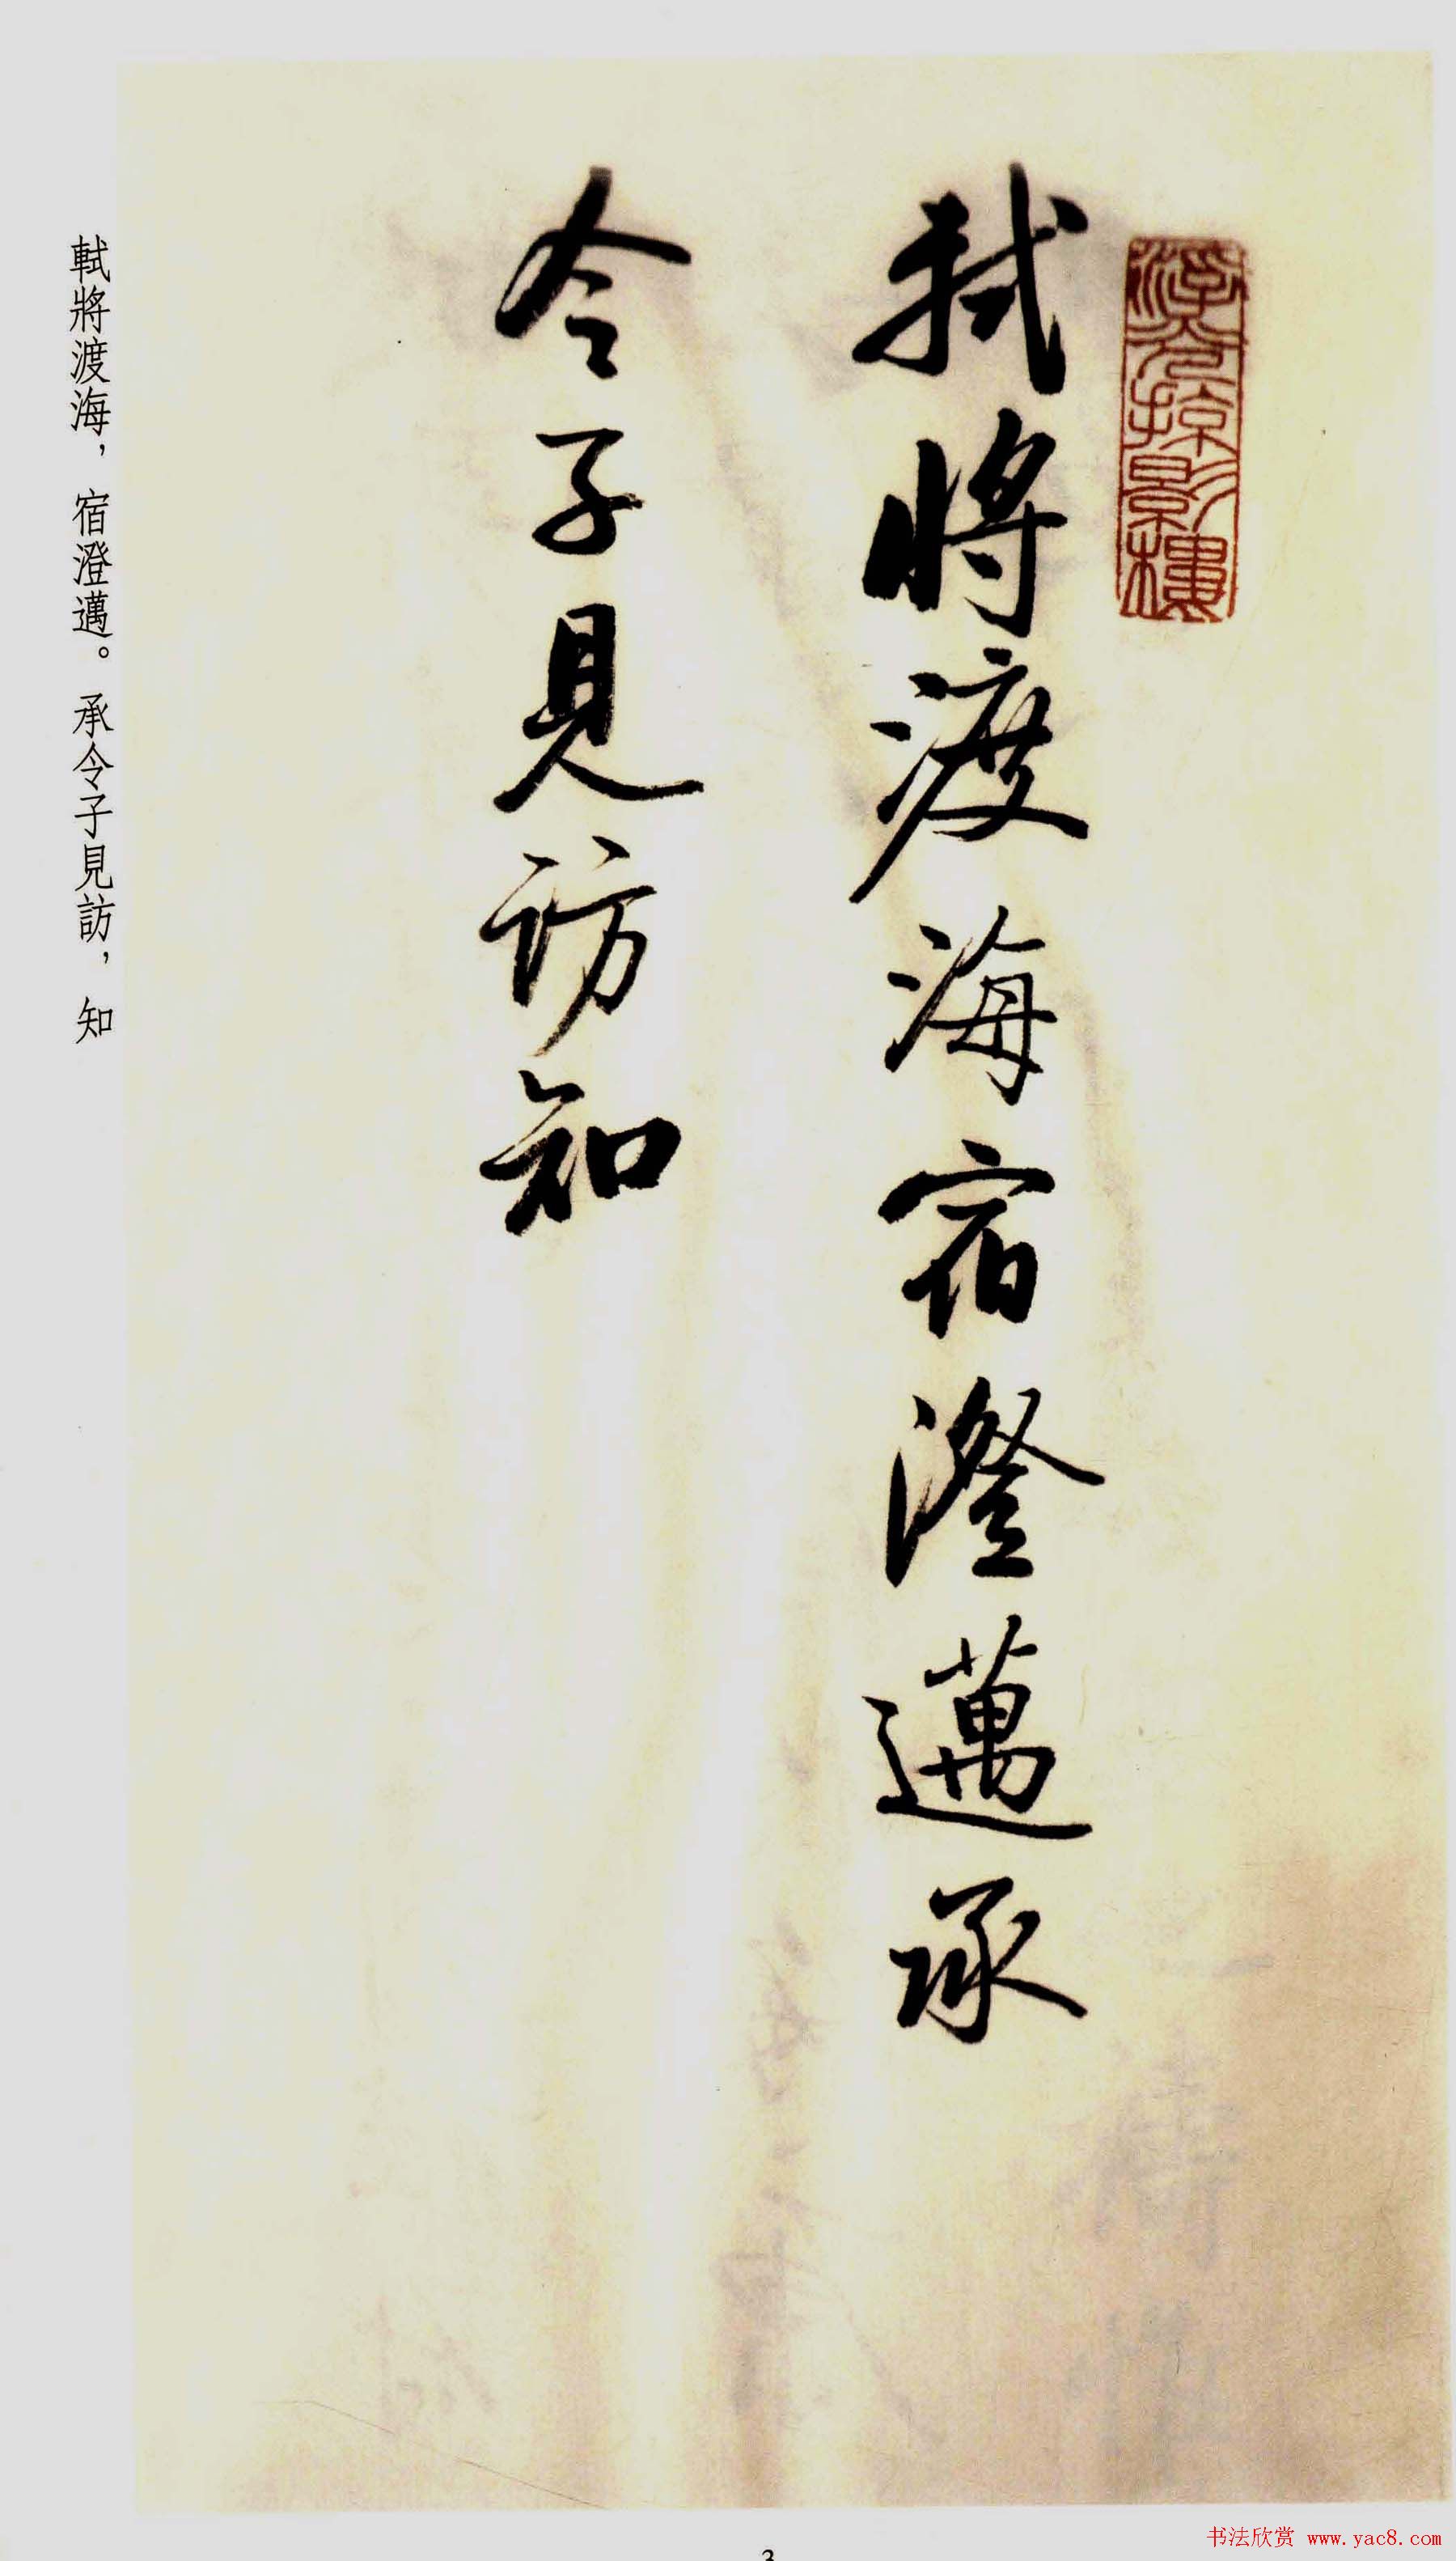 軾將渡海宿澄邁承
令子見訪知
軾將渡海，宿澄邁。承令子見訪，知
3
书法欣赏 www.yac8.com